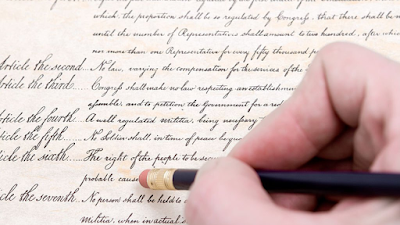 which, the proportion shall be so regulated by Congress, that there shall be n
until the number of Representatives shall amount to two hundred, after which
nor more than one Representative for every fifty thousand p
Article the second ... No law, varying the compensation for the services of the
Article the third ...... Congress shall make no law respecting an establishmen
assemble, and to petition the Government for a red
Article the fourth ... A well regulated militia, being necessary t
Article the fifth ...... No Soldier shall, in time of peace be qu
rticle the sixth ...... The right of the people to be secu
probable caus
rticle the seventh ... No person shall be held to
Militia, when in actual s